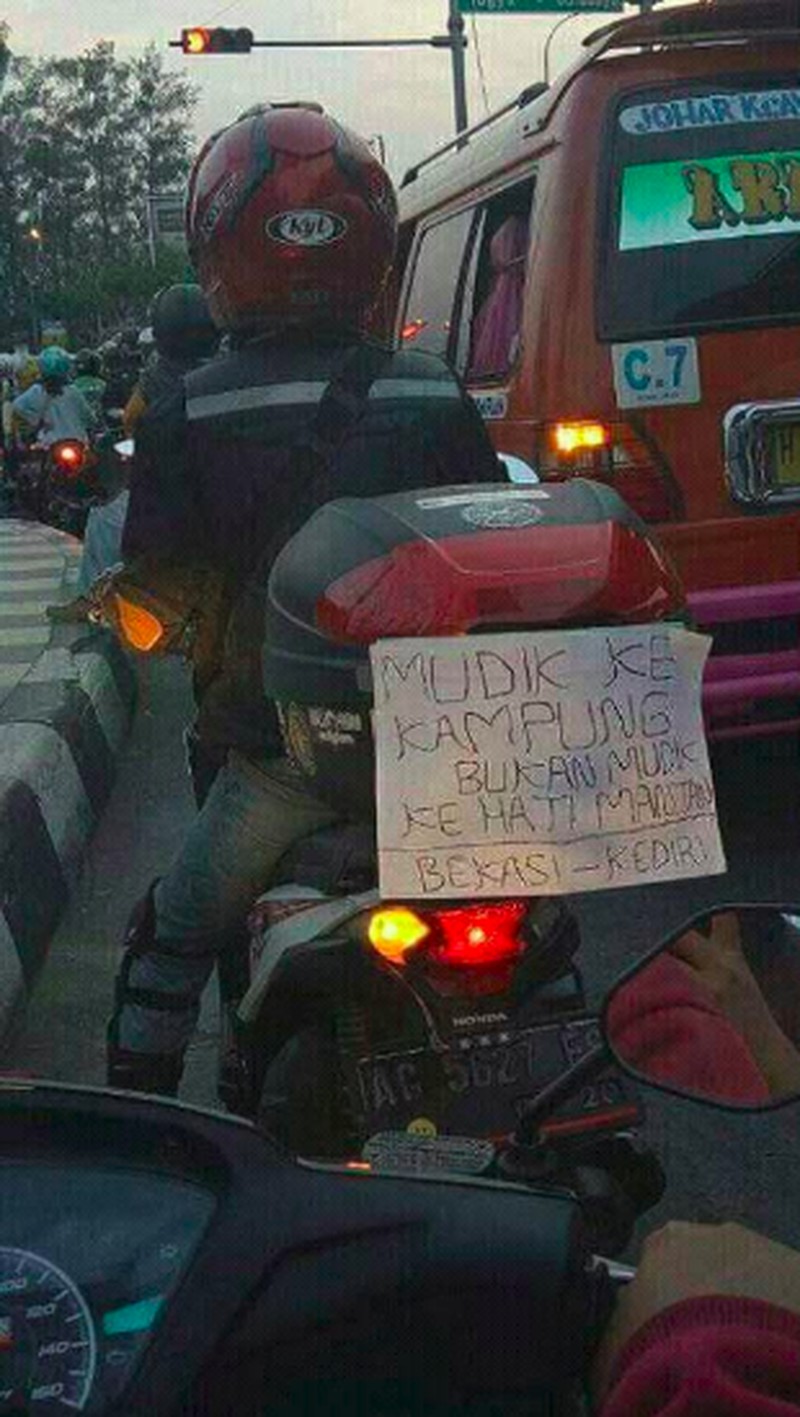 JOHAR
Kyt
C.7
H
MUDIK KE
KAMPUNG
BUKAN MUDIK
KE HATI MANTAN
BEKASI - KEDIRI
HONDA
AG 5627
120
140
160